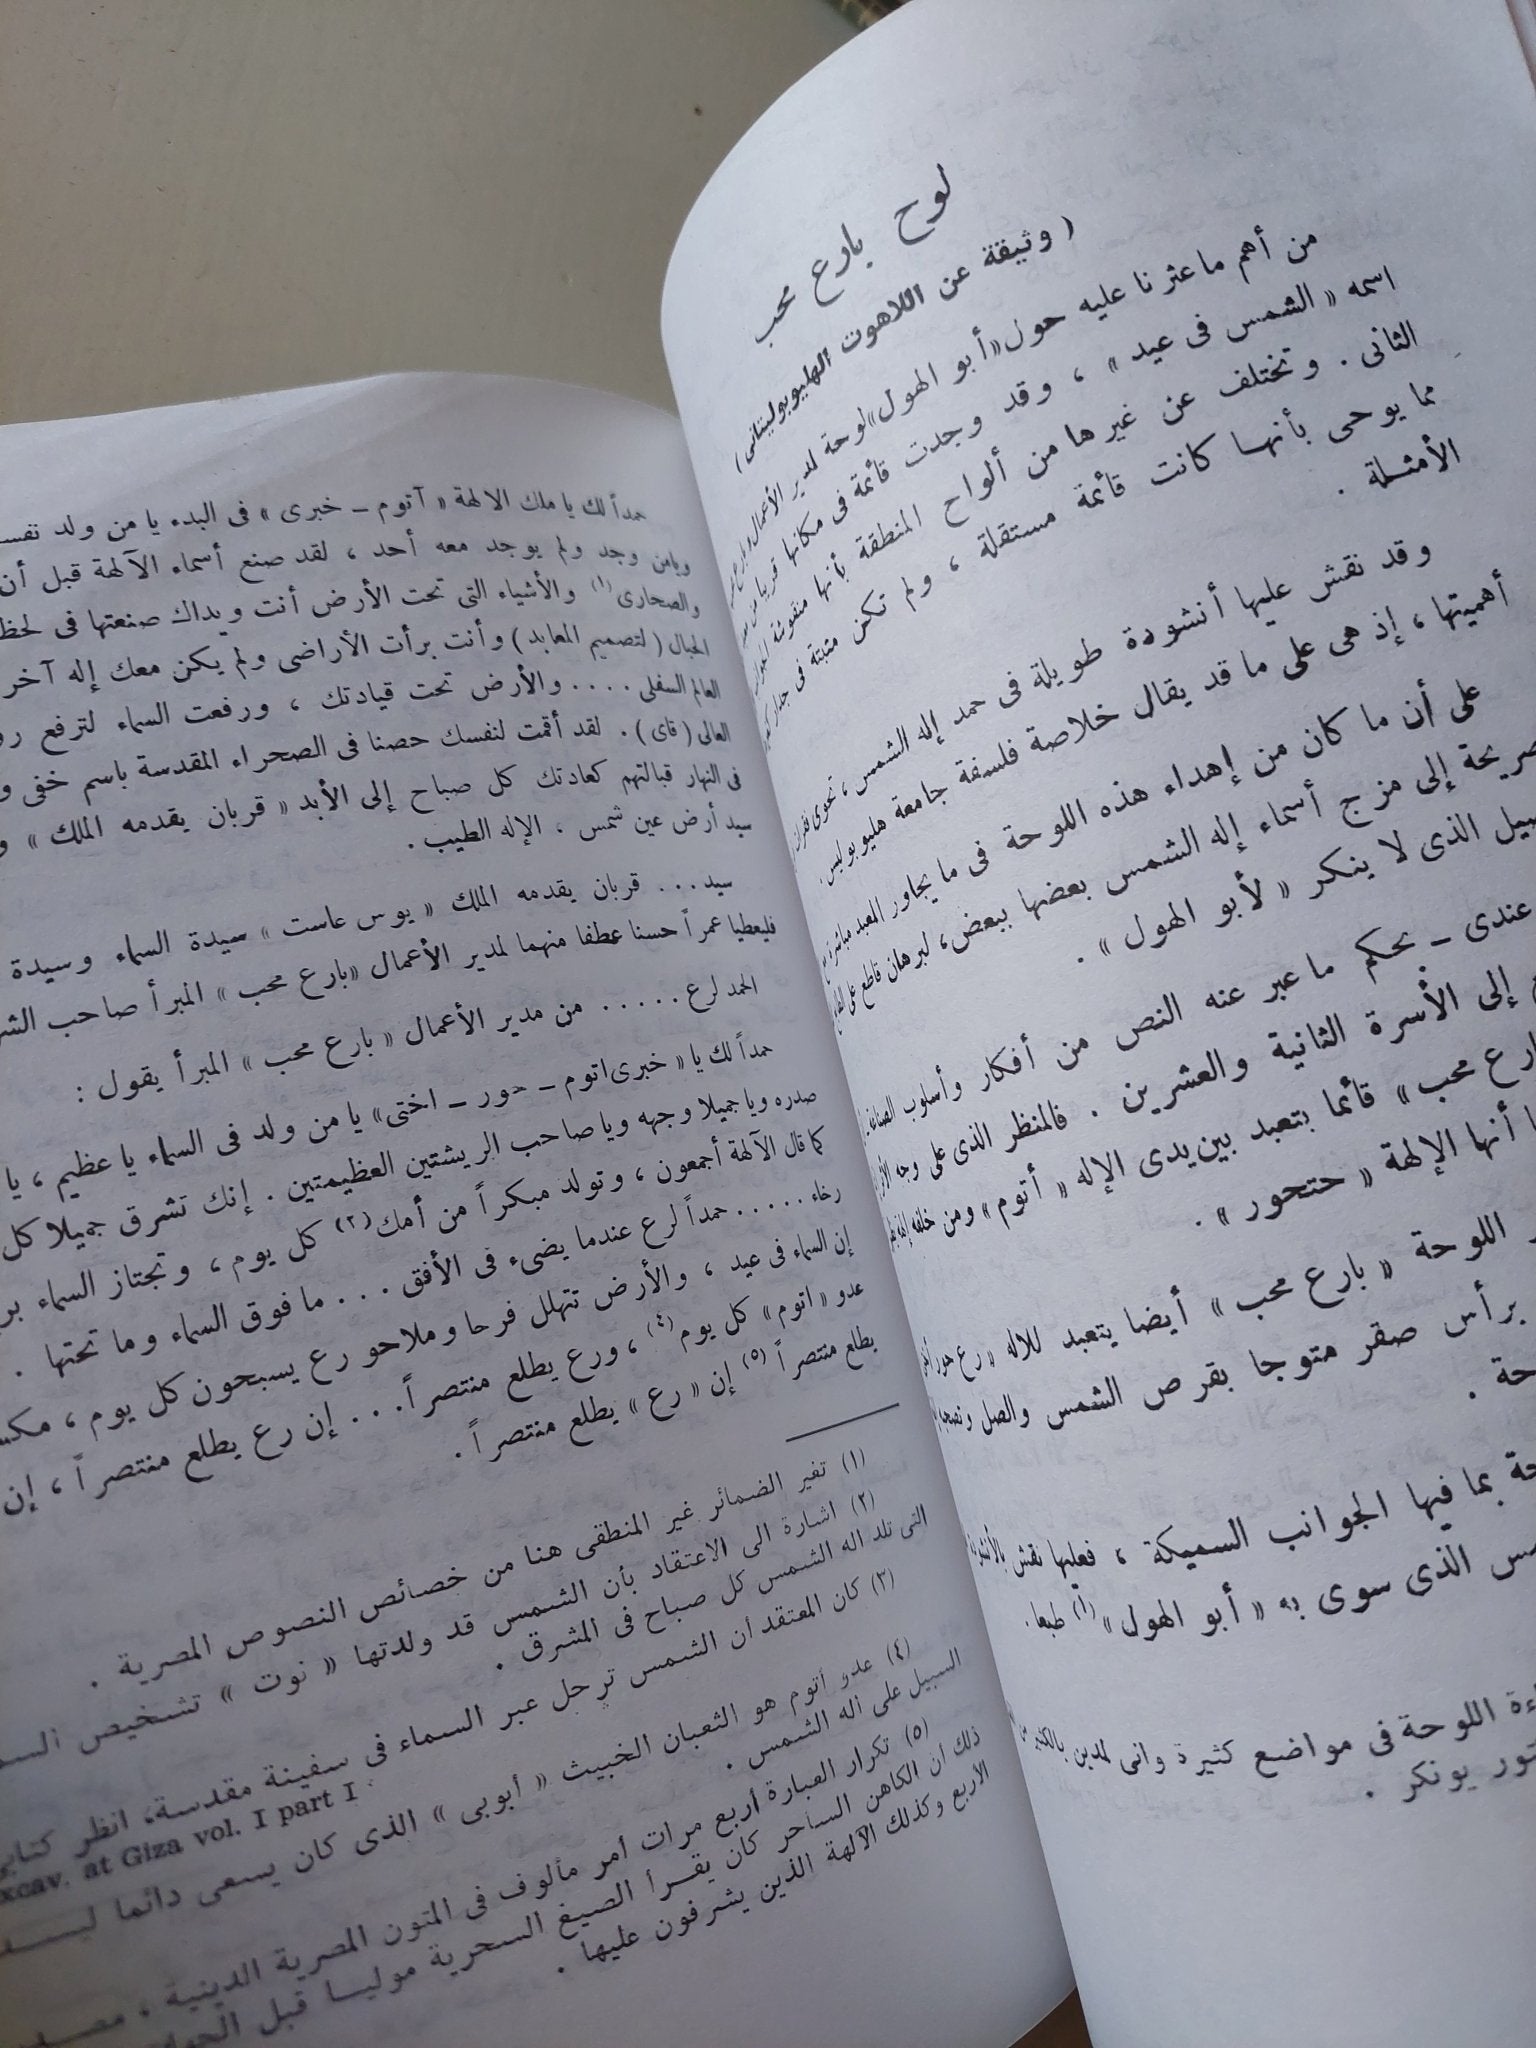 لوح بارع محب
( وثيقة عن اللاهوت الهليوبوليتانى )
من أهم ما عثرنا عليه حول « أبو الهول » لوحة لمدير الأعمال
اسمه « الشمس فى عيد » ، وقد وجدت قائمة فى مكانها قريبا من
الثانى . وتختلف عن غيرها من ألواح المنطقة بأنها منقوشة
مما يوحى بأنها كانت قائمة مستقلة ، ولم تكن مثبتة فى جدار
الأمثلة .
وقد نقش عليها أنشودة طويلة فى حمد إله الشمس ، تحوى
أهميتها ، إذ هى على ما قد يقال خلاصة فلسفة جامعة هليوبوليس .
على أن ما كان من إهداء هذه اللوحة فى ما يجاور المعبد مباشرة
صريحة إلى مزج أسماء إله الشمس بعضها ببعض ، لبرهان قاطع على
الذى لا ينكر « لأبو الهول » .
عندى – بحكم ما عبر عنه النص من أفكار وأسلوب الصناعة
إلى الأسرة الثانية والعشرين . فالمنظر الذى على وجه
بارع محب » قائما بتعبد بين يدى الإله « أتوم » ومن خلفه
أنها الإلهة « حتحور » .
اللوحة « بارع محب » أيضا يتعبد للاله « رع حور
برأس صقر متوجا بقرص الشمس والصل
بما فيها الجوانب السميكة ، فعليها نقش
الذى سوى به « أبو الهول » (١) طبعا .
اللوحة فى مواضع كثيرة وانى لمدين بالكثير من
يونكر .
حمداً لك يا ملك الالهة « آتوم – خبرى » فى البدء يا من ولد
ويامن وجد ولم يوجد معه أحد ، لقد صنع أسماء الآلهة قبل أن
والصحارى (١) والأشياء التى تحت الأرض أنت ويداك صنعتها فى
الجبال ( لتصميم المعابد ) وأنت برأت الأراضى ولم يكن معك إله آخر
العالم السفلى .... والأرض تحت قيادتك ، ورفعت السماء لترفع
العالى ( قاى ) . لقد أقمت لنفسك حصنا فى الصحراء المقدسة باسم خفى
فى النهار قبالتهم كعادتك كل صباح إلى الأبد « قربان يقدمه الملك »
سيد أرض عين شمس ، الإله الطيب .
سيد ... قربان يقدمه الملك « يوس عاست » سيدة السماء وسيدة
فليعطيا عمراً حسنا عطفا منهما لمدير الأعمال « بارع محب » المبرأ صاحب
الحمد لرع ..... من مدير الأعمال « بارع محب » المبرأ يقول :
حمداً لك يا « خبرى اتوم – حور – اختى » يا من ولد فى السماء يا عظيم ، يا
صدره ويا جميلا وجهه ويا صاحب الريشتين العظيمتين . إنك تشرق جميلا كل
كما قال الآلهة أجمعون ، وتولد مبكراً من أمك (٢) كل يوم ، وتجتاز السماء
رخاء ..... حمداً لرع عندما يضىء فى الأفق ... ما فوق السماء وما تحتها .
إن السماء فى عيد ، والأرض تتهلل فرحا وملاحو رع يسبحون كل يوم ،
عدو « اتوم » كل يوم (٤) ، ورع يطلع منتصراً ... إن رع يطلع منتصراً ، إن
يطلع منتصراً (٥) إن « رع » يطلع منتصراً .
(١) تغير الضمائر غير المنطقى هنا من خصائص النصوص المصرية .
(٢) اشارة الى الاعتقاد بأن الشمس قد ولدتها « نوت » تشخيص
التى تلد اله الشمس كل صباح فى المشرق .
(٣) كان المعتقد أن الشمس ترحل عبر السماء فى سفينة مقدسة ، انظر
at Giza vol. I part I
(٤) عدو أتوم هو الثعبان الخبيث « أبوبى » الذى كان يسعى دائما
السبيل على اله الشمس .
(٥) تكرار العبارة أربع مرات أمر مألوف فى المتون المصرية الدينية ،
ذلك أن الكاهن الساحر كان يقرأ الصيغ السحرية موليا قبل
الأربع وكذلك الآلهة الذين يشرفون عليها .